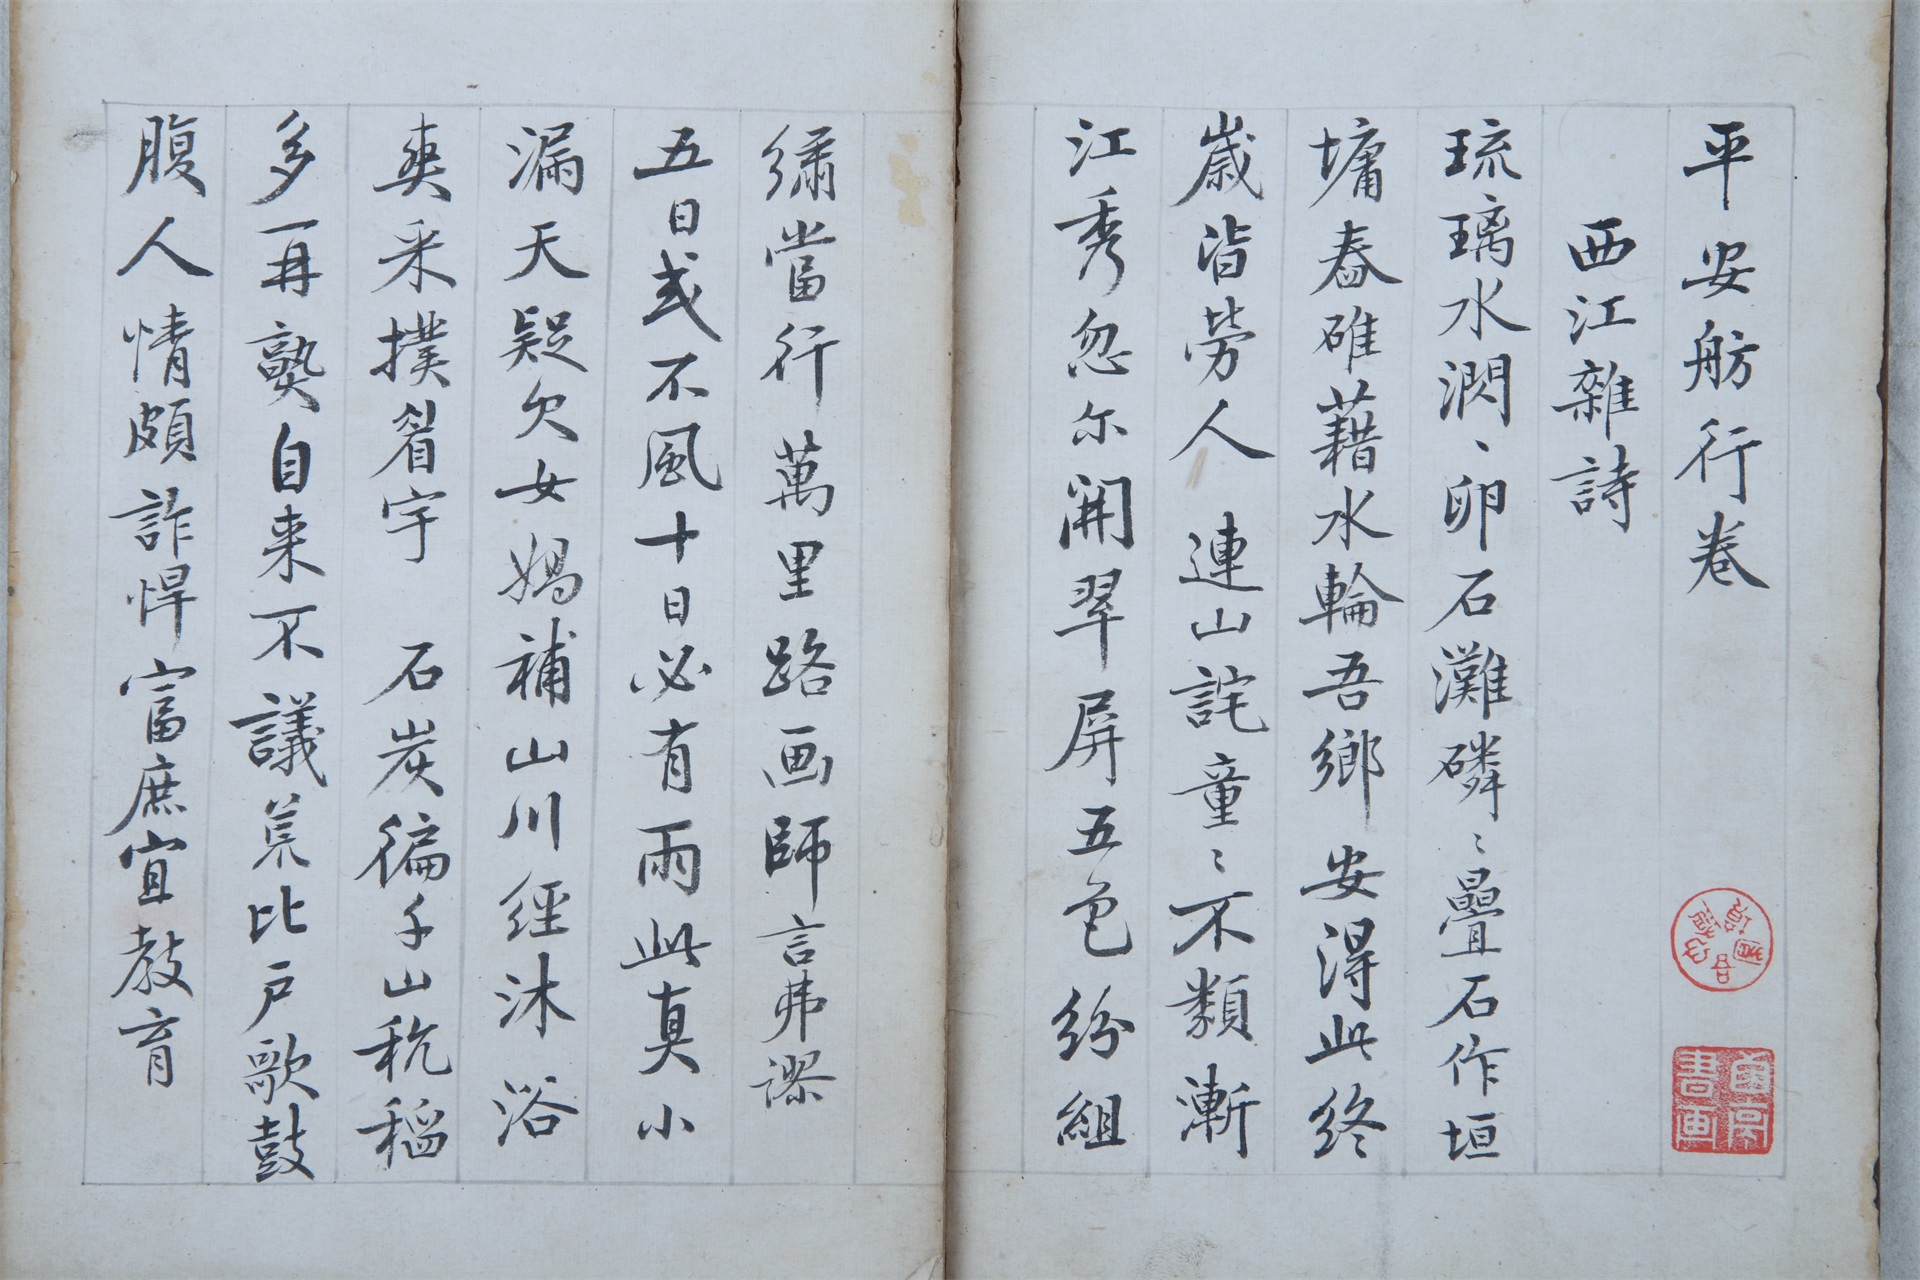 平安舫行卷
西江雜詩
琉璃水潤〻卵石灘磷〻疊石作垣
墉舂碓藉水輪吾鄉安得此終
歲皆勞人 連山詫童〻不類漸
江秀忽尔開翠屏五色紛組
繡當行萬里路画師言弗謬
五日或不風十日必有雨此真小
漏天疑欠女媧補山川經沐浴
爽采撲眉宇 石炭徧子山秔稻
多再爇自来不議荒比户歌鼓
腹人情頗詐悍富庶宜教育
書画